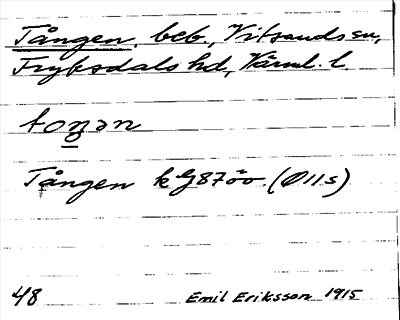 Tången, beb., Vitsands sn,
Fryksdals hd, Värml. l.
toŋən
Tången k G87öv. (Ø11s)
48 Emil Eriksson 1915